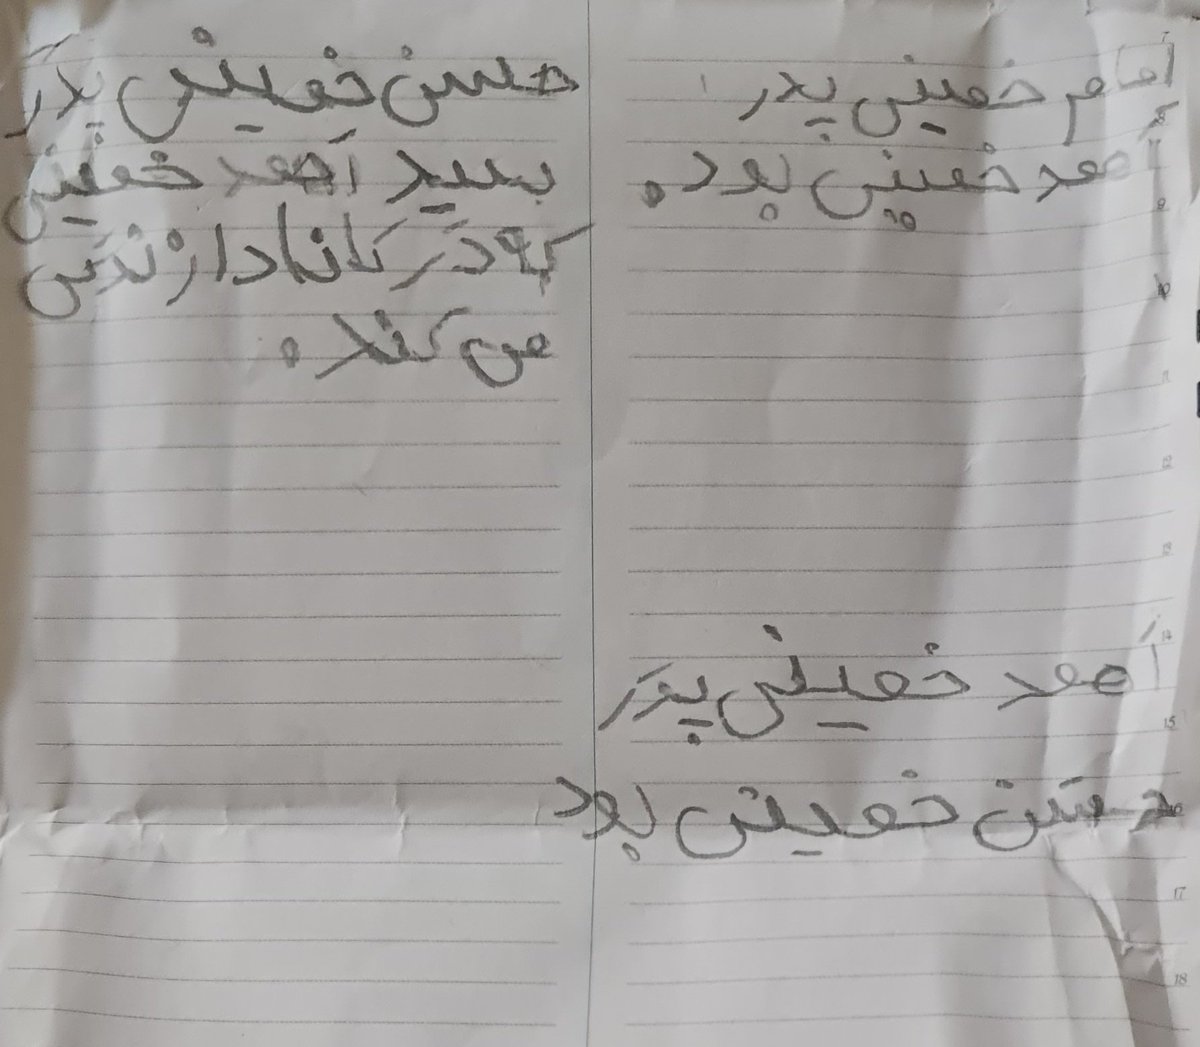 امام خمینی پدر
احمد خمینی بود.
احمد خمینی پدر
حسن خمینی بود
حسن خمینی پدر
سید احمد خمینی
که در کانادا زندگی
می کند.
7
8
9
10
11
12
13
14
15
17
18